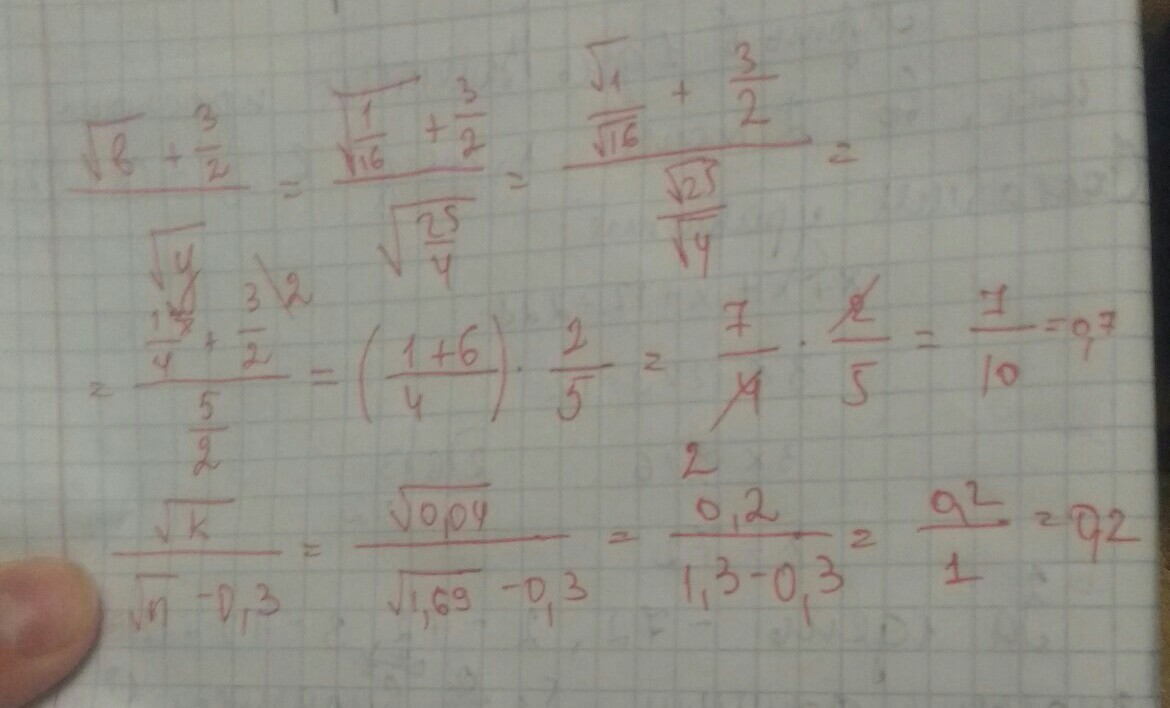 (√b + 3/2) / √y = (√(1/16) + 3/2) / √(25/4) = (√1/√16 + 3/2) / (√25/√4) =
= (1/4 + 3/2 \2) / (5/2) = ((1+6)/4) · 2/5 = 7/4 · 2/5 = 7/10 = 0,7
2
√k / (√n - 0,3) = √0,04 / (√1,69 - 0,3) = 0,2 / (1,3 - 0,3) = 0,2 / 1 = 0,2